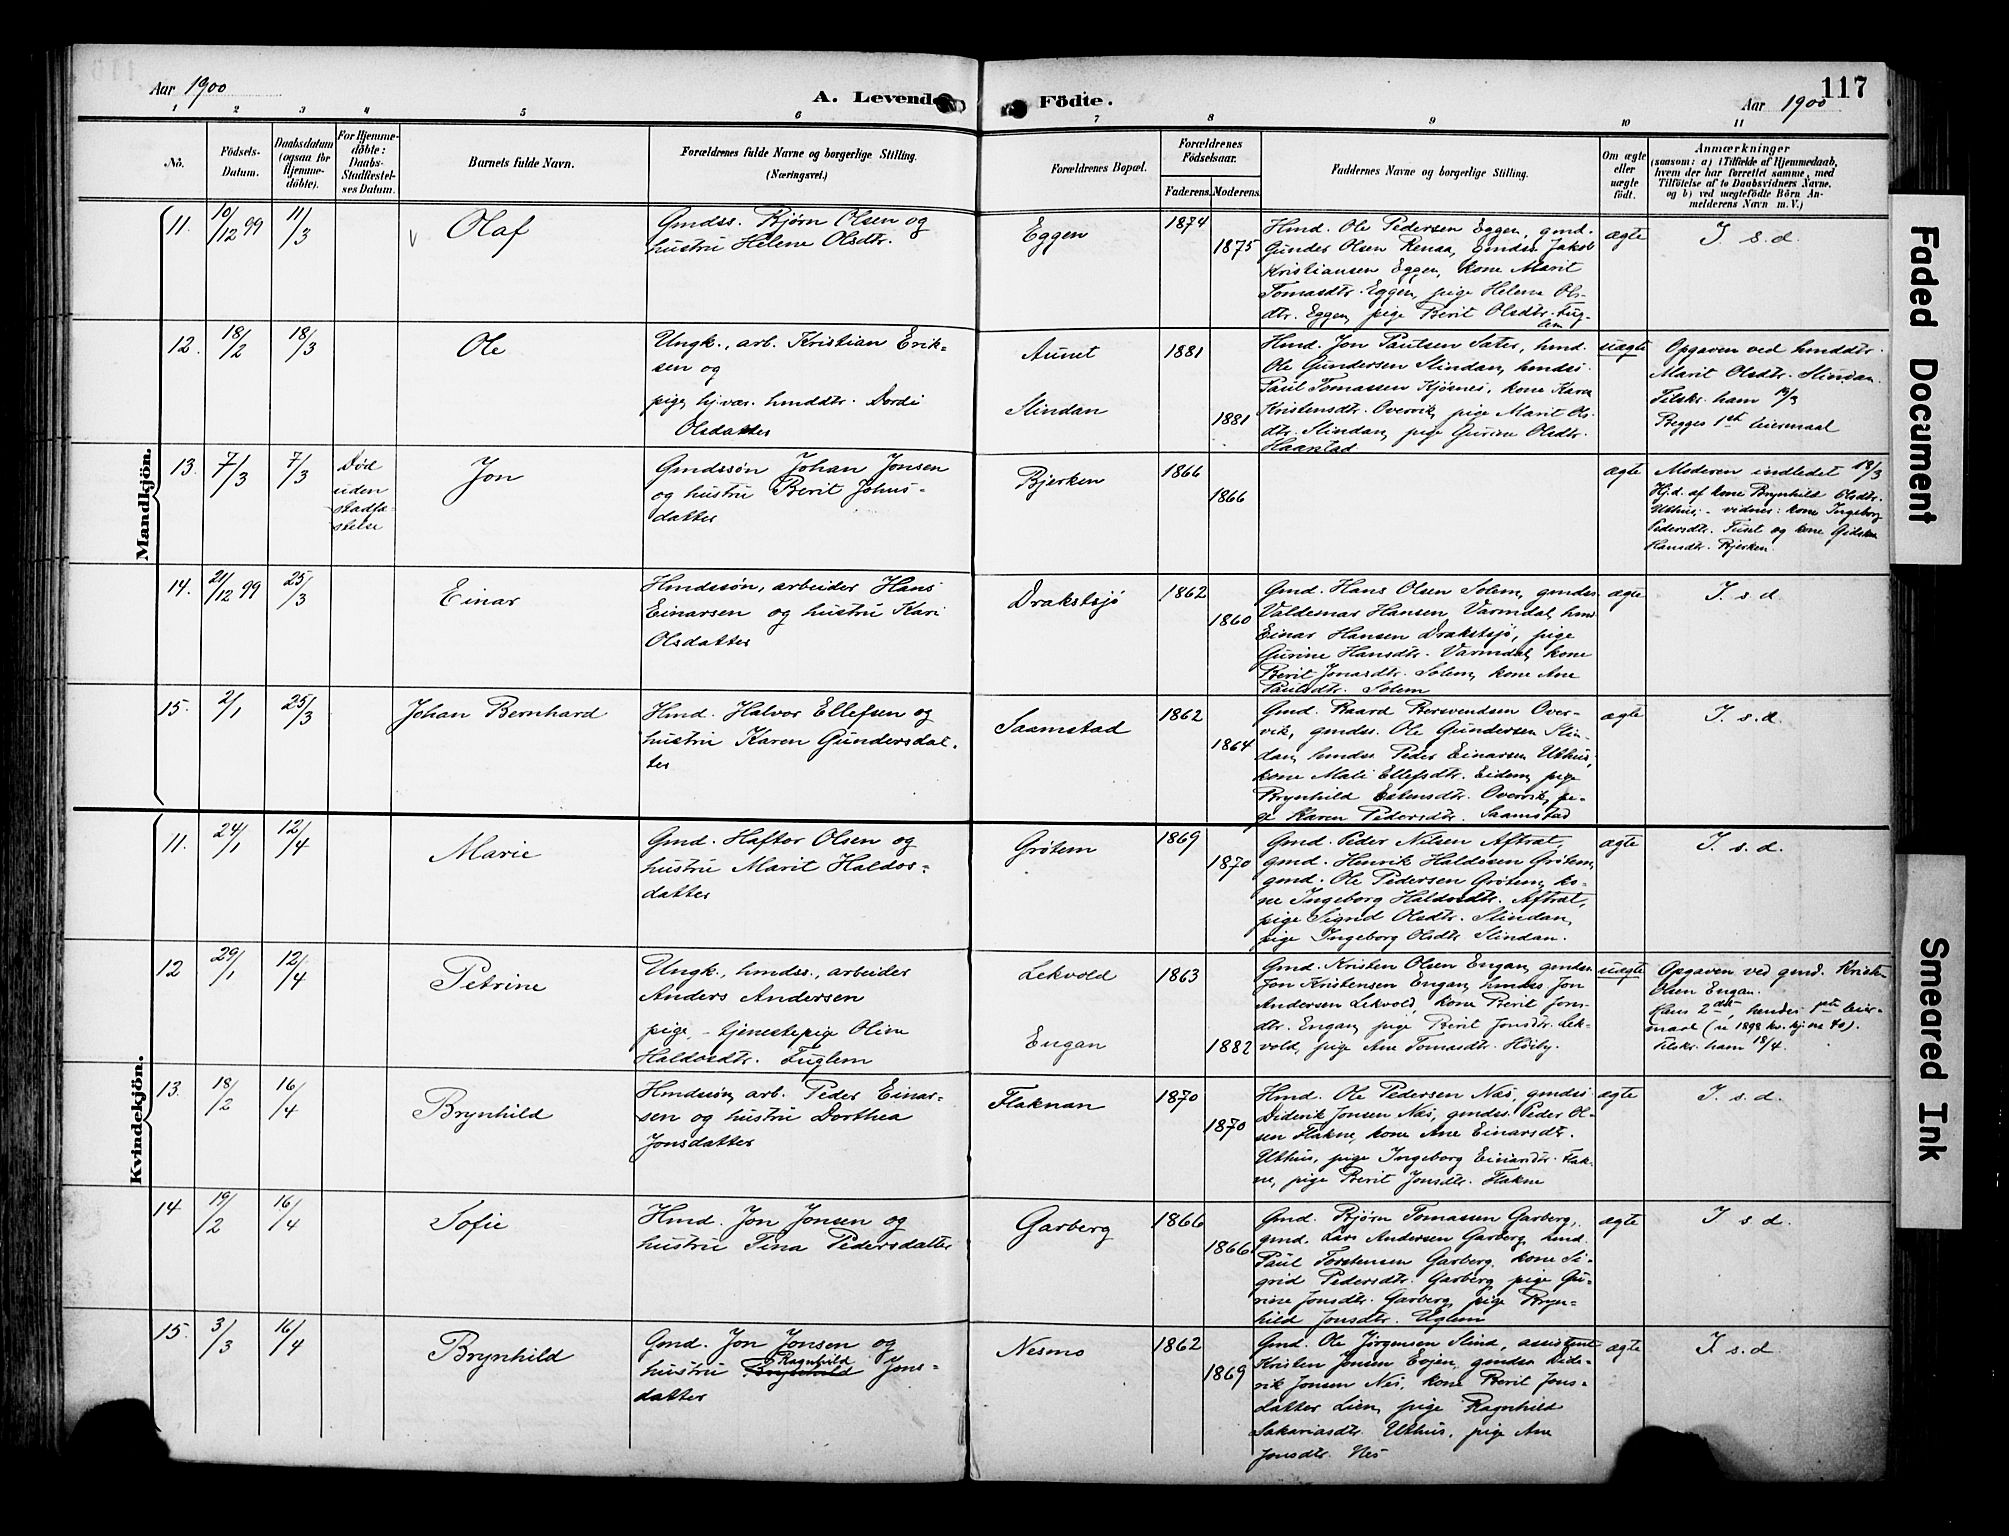 Aar 1900
A. Levende Födte.
117
Aar 1900
1 2 3 4 5 6 7 8 9 10 11
No.
Födsels-Datum.
Daabsdatum (ogsaa for Hjemme-döbte).
For Hjemme-döbte: Daabs-Stadfæstel-ses Datum.
Barnets fulde Navn.
Forældrenes fulde Navne og borgerlige Stilling.
(Næringsvei.)
Forældrenes Bopæl.
Forældrenes Födselsaar.
Faderens. Moderens.
Faddernes Navne og borgerlige Stilling.
Om ægte eller uægte födt.
Anmærkninger
(saasom: a) i Tilfælde af Hjemmedaab,
hvem der har forrettet samme, med
Tilföielse af to Daabsvidners Navne,
og b) ved uægtefödte Börn An-
melderens Navn m. V.)
Mandkjön.
11. 10/12 99 11/3 Olaf
Gmdss. Bjørn Olsen og
hustru Helene Olsdtr.
Eggen
1874
1875
Hmd. Ole Pedersen Eggen, gmd.
Gunder Olsen Renaa, gmdss. Jakob
Kristiansen Eggen, kone Marit
Tomasdtr. Eggen, pige Helene Ols-
dtr. Eggen, pige Berit Olsdtr. Fug-
lem
ægte
I s. d.
12. 18/2 18/3 Ole
Ungk., arb. Kristian Erik-
sen og
pige, hj.vær. hmddtr. Dordi
Olsdatter
Aunet
Slindan
1881
1881
Hmd. Jon Paulsen Sæter, hmd.
Ole Gundersen Slindan, hmdss.
Paul Tomassen Kjösnes, kone Karen
Kristensdtr. Overvik, pige Marit Ols-
dtr. Slindan, pige Gurine Olsdtr.
Haarstad
uægte
Opgaven ved hmddtr.
Marit Olsdtr. Slindan.
Tilskr. ham 19/3
Begges 1ste leiermaal
13. 7/3 7/3
Död
uden
stadfæ-
stelse
Jon
Gmdssøn Johan Jonsen
og hustru Berit Johns-
datter
Bjerken
1866
1866
ægte
Moderen indledet 18/3
Hj.d. af kone Brynhild Olsdtr.
Uthus, - vidner: kone Ingeborg
Pedersdtr. Tuset og kone Gidsken
Hansdtr. Bjerken.
14. 21/12 99 25/3 Einar
Hmdssøn, arbeider Hans
Einarsen og hustru Kari
Olsdatter
Drakstsjö
1862
1860
Gmd. Hans Olsen Solem, gmdss.
Valdemar Hansen Varmdal, hmd
Einar Hansen Drakstsjö, pige
Gurine Hansdtr. Varmdal, kone
Berit Jonasdtr. Solem, kone Ane
Paulsdtr. Solem
ægte
I s. d
15. 2/1 25/3 Johan Bernhard
Hmd. Halvor Ellefsen og
hustru Karen Gundersdat-
ter
Saamstad
1862
1864
Gmd. Baard Bersvendsen Over-
vik, gmdss. Ole Gundersen Slin-
dan, hmdss. Peder Einarsen Uthus,
kone Mali Ellefsdtr. Eidem, pige
Brynhild Estensdtr. Overvik, pi-
ge Karen Pedersdtr. Saamstad
ægte
I. s. d.
Kvindekjön.
11. 24/1 12/4 Marie
Gmd. Haftor Olsen og
hustru Marit Haldos-
datter
Grötem
1869
1870
Gmd. Peder Nilsen Aftret,
gmd. Henrik Haldosen Grötem,
gmd. Ole Pedersen Grötem, ko-
ne Ingeborg Haldosdtr. Aftret,
pige Sigrid Olsdtr. Slindan,
pige Ingeborg Olsdtr. Slindan.
ægte
I. s. d.
12 29/1 12/4 Petrine
Ungk., hmdss., arbeider
Anders Andersen
pige, - tjenestepige Oline
Haldosdtr. Fuglem
Lekvold
Engan
1863
1882
Gmd. Kristen Olsen Engan, gmdss.
Jon Kristensen Engan, hmdss. Jon
Andersen Lekvold, kone Berit Jons-
dtr. Engan, pige Berit Jonsdtr. Lek-
vold, pige Ane Tomasdtr. Höiby.
uægte
Opgaven ved gmd. Kristen
Olsen Engan.
Hans 2det, hendes 1ste leier-
maal (se 1898 kv.kj. no 40).
Tilskr. ham 18/4.
13. 18/2 16/4 Brynhild
Hmdssøn, arb. Peder Einar-
sen og hustru Dorthea
Jonsdatter
Flaknan
1870
1870
Hmd. Ole Pedersen Næs, gmdss
Diderik Jonsen Næs, gmdss. Peder Ol-
sen Flakne, kone Ane Einarsdtr.
Uthus, pige Ingeborg Einarsdtr. Flak-
ne, pige Berit Jonsdtr. Flakne
ægte
I. s. d.
14 19/2 16/4 Sofie
Hmd. Jon Jonsen og
hustru Tina Pedersdatter
Garberg
1866
1866
Gmd. Bjørn Tomassen Garberg,
gmd. Lars Andersen Garberg, hmd.
Paul Torstensen Garberg, kone Si-
grid Pedersdtr. Garberg, pige Gu-
rine Jonsdtr. Garberg, pige Bryn-
hild Jonsdtr. Uglem
ægte
I s d.
15. 3/3 16/4 Brynhild
Gmd. Jon Jonsen og
hustru Brynhild Ragnhild Jons-
datter
Nesmo
1862
1869
Gmd. Ole Jörgensen Slind, assistent
Kristen Jonsen Evjen, gmdss. Dide-
rik Jonsen Nes, kone Berit Jons-
datter Lien, pige Ragnhild
Sakariasdtr. Uthus, pige Ane
Jonsdtr. Nes
ægte
I s. d.
Faded Document
Smeared Ink